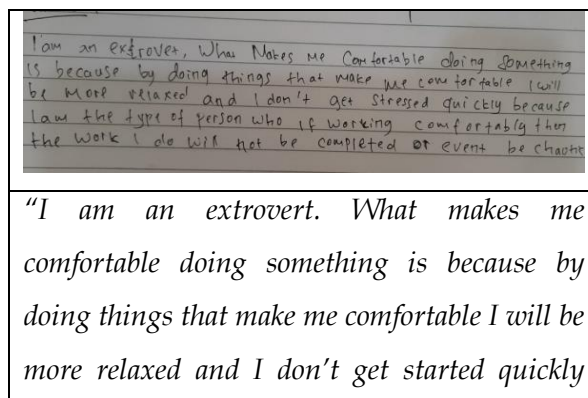 I am an extrovet, What Makes Me Comfortable doing Something
is because by doing things that make me comfortable I will
be More relaxed and I don't get Stressed quickly because
I am the type of person who if working comfortably then
the work I do will not be completed or event be chaotic
“I am an extrovert. What makes me
comfortable doing something is because by
doing things that make me comfortable I will be
more relaxed and I don’t get started quickly